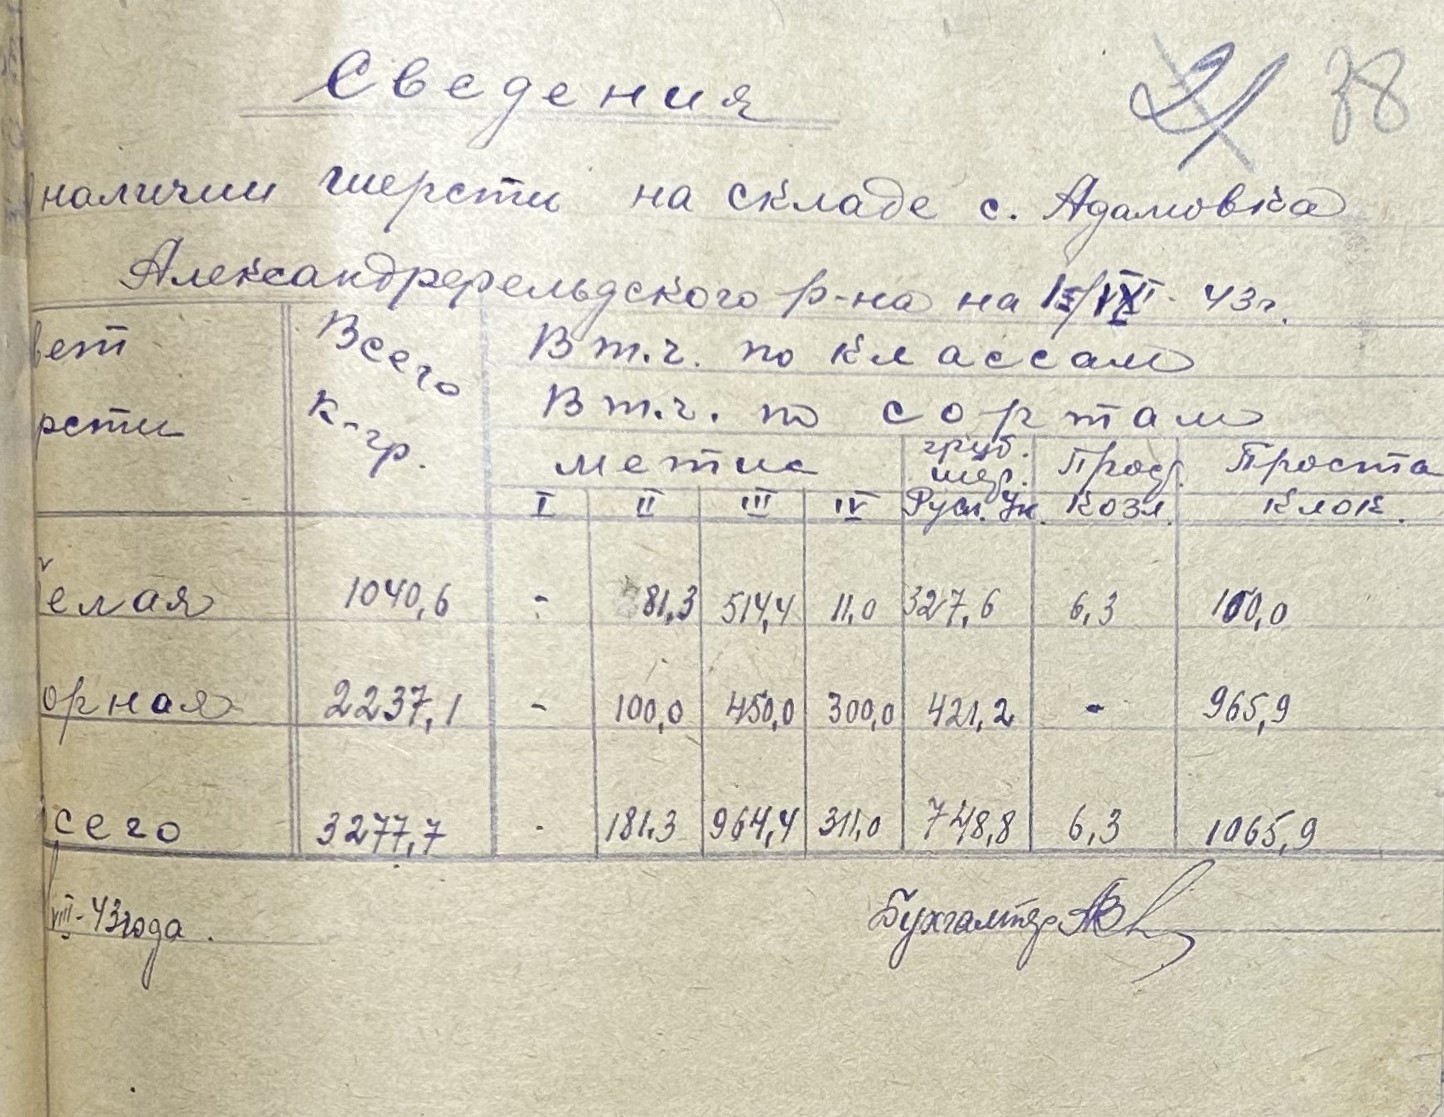 21 38
Сведения
наличии шерсти на складе с. Адамовка
Александрфельдского р-на на 43г.
вет Всего В т.ч. по классам
рсти к-гр. В т.ч. по сортам
метис груб. шер. Прод. Проста
I II III IV Русс. Ук. козл. клок.
елая 1040,6 - 81,3 514,4 11,0 327,6 6,3 100,0
орная 2237,1 - 100,0 450,0 300,0 421,2 - 965,9
сего 3277,7 - 181,3 964,4 311,0 748,8 6,3 1065,9
VIII-43 года. Бухгалтер